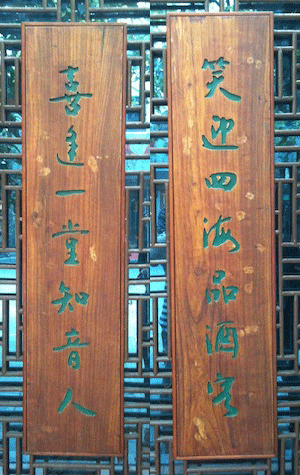 笑迎四海品酒客
喜逢一堂知音人